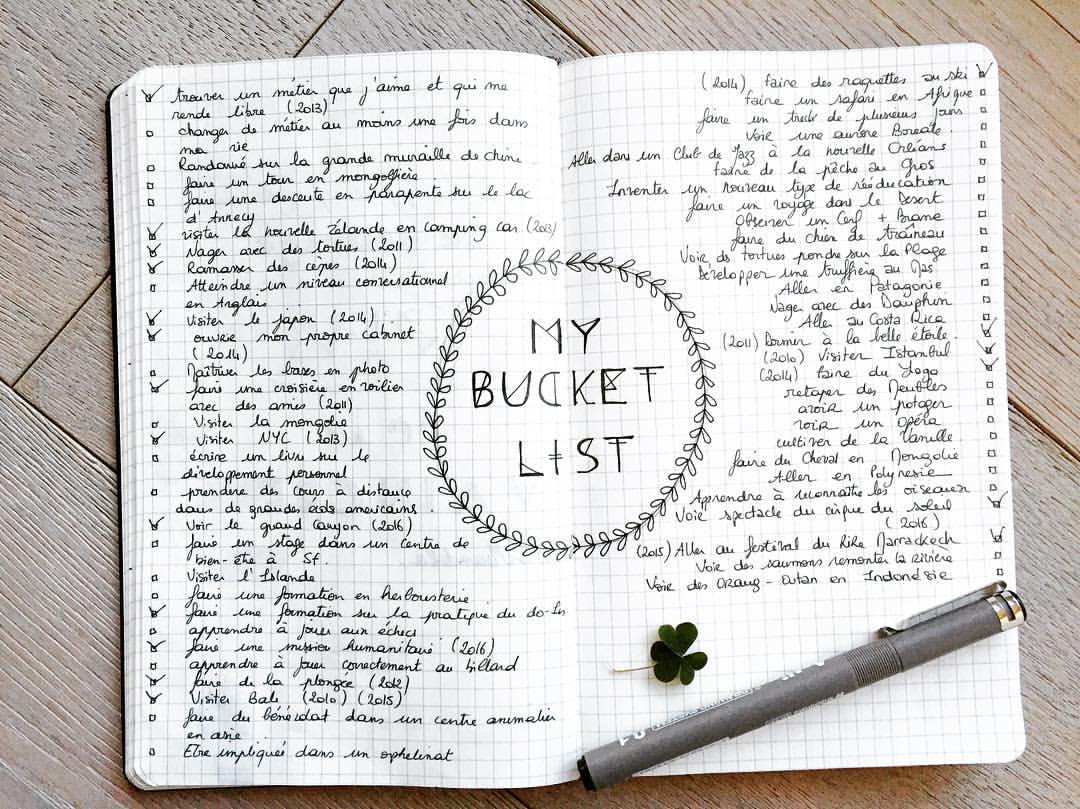 trouver un métier que j'aime et qui me
rende libre (2013)
changer de métier au moins une fois dans
ma vie
Randonné sur la grande muraille de chine
faire un tour en mongolfière
faire une descente en parapente sur le lac
d'Annecy
visiter la nouvelle Zélande en camping car (2013)
Nager avec des tortues (2011)
Ramasser des cèpes (2014)
Atteindre un niveau conversationnel
en Anglais
Visiter le japon (2014)
ouvrir mon propre cabinet
(2014)
Maîtriser les bases en photo
faire une croisière en voilier
avec des amis (2011)
Visiter la mongolie
Visiter NYC (2013)
écrire un livre sur le
développement personnel
prendre des cours à distance
dans de grandes américains
Voir le grand Canyon (2016)
faire un stage dans un centre de
bien-être à SF.
Visiter l'Islande
faire une formation en herboristerie
faire une formation sur la pratique du do-In
apprendre à jouer aux échecs
faire une mission humanitaire (2016)
apprendre à jouer correctement au billard
faire de la plongée (2012)
Visiter Bali (2010) (2015)
faire du bénévolat dans un centre animalier
en asie
Etre impliquée dans un orphelinat
MY
BUCKET
LIST
(2014) faire des raquettes au ski
faire un safari en Afrique
faire un treck de plusieurs jours
Voir une aurore Boréale.
Aller dans un Club de Jazz à la nouvelle Orléans
faire de la pêche au gros
Inventer un nouveau type de rééducation
faire un voyage dans le Desert
Observer un Cerf + Brame
faire du chien de traîneau
Voir des tortues pondre sur la Plage
Développer une truffière au
Aller en Patagonie
Nager avec des Dauphin
Aller au Costa Rica
(2011) Dormir à la belle étoile.
(2010) Visiter Istanbul
(2014) faire du Yoga
retaper des Meubles
avoir un potager
voir un opéra
cultiver de la Vanille
faire du Cheval en Mongolie
Aller en Polynesie
Apprendre à reconnaître les oiseaux
Voir spectacle du cirque du soleil
(2016)
(2015) Aller au festival du Rire Marrackech
Voir des saumons remonter la rivière
Voir des Orang-Outan en Indonésie